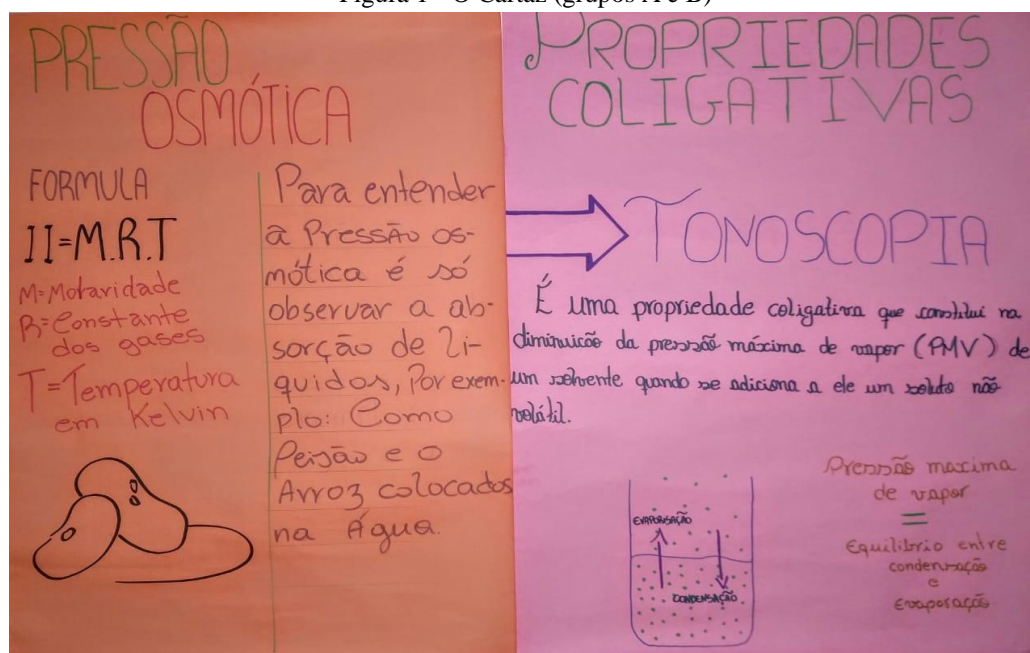 Figura 1 - O Cartaz (grupos A e B)
PRESSÃO
OSMÓTICA
FORMULA
II=M.R.T
M=Molaridade
R=Constante
dos gases
T=Temperatura
em Kelvin
Para entender
a Pressão os-
mótica é só
observar a ab-
sorção de li-
quidos, Por exem-
plo: Como
Feijão e o
Arroz colocados
na Água.
PROPRIEDADES
COLIGATIVAS
TONOSCOPIA
É uma propriedade coligativa que constitui na
diminuicão da pressão máxima de vapor (PMV) de
um solvente quando se adiciona a ele um soluto não
volátil.
EVAPORAÇÃO
CONDENSAÇÃO
Pressão maxima
de vapor
=
Equilibrio entre
condensação
e
Evaporação